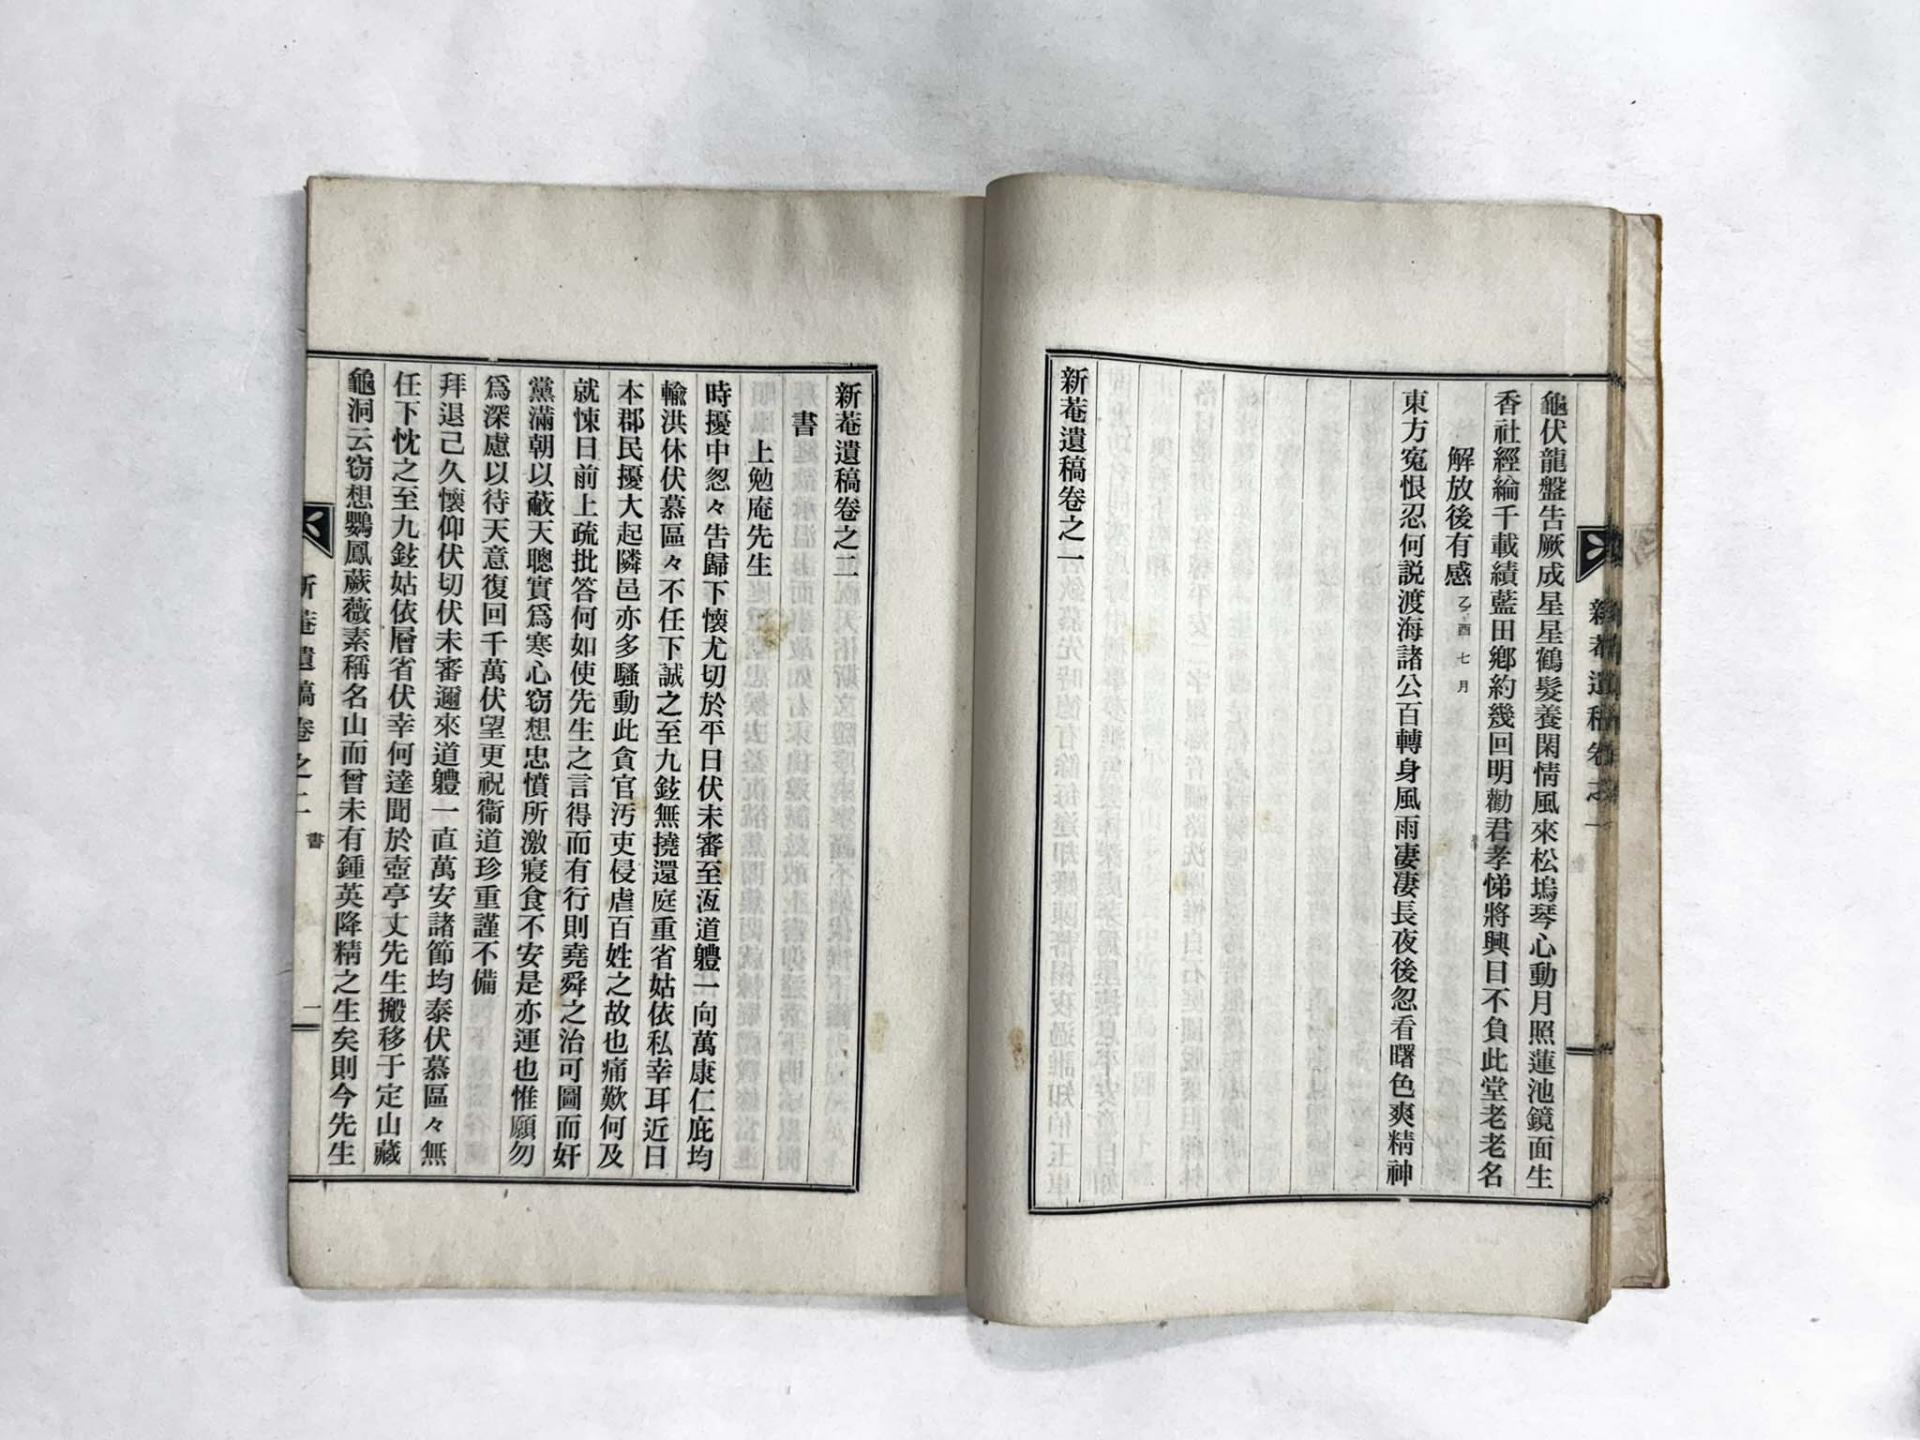 龜伏龍盤告厥成星星鶴髮養閑情風來松塢琴心動月照蓮池鏡面生
香社經綸千載績藍田鄕約幾回明勸君孝悌將興日不負此堂老老名
解放後有感 乙酉七月
東方寃恨忍何説渡海諸公百轉身風雨凄凄長夜後忽看曙色爽精神
新菴遺稿卷之一
新菴遺稿卷之一
新菴遺稿卷之二
書
上勉庵先生
時擾中怱々告歸下懷尤切於平日伏未審至恆道軆一向萬康仁庇均
輸洪休伏慕區々不任下誠之至九鉉無撓還庭重省姑依私幸耳近日
本郡民擾大起隣邑亦多騷動此貪官汚吏侵虐百姓之故也痛歎何及
就悚日前上疏批答何如使先生之言得而有行則堯舜之治可圖而奸
黨滿朝以蔽天聰實爲寒心窃想忠憤所激寢食不安是亦運也惟願勿
爲深慮以待天意復回千萬伏望更祝衞道珍重謹不備
拜退己久懷仰伏切伏未審邇來道軆一直萬安諸節均泰伏慕區々無
任下忱之至九鉉姑依層省伏幸何達聞於壺亭丈先生搬移于定山藏
龜洞云窃想鸚鳳蕨薇素稱名山而曾未有鍾英降精之生矣則今先生
新菴遺稿卷之二 書 一